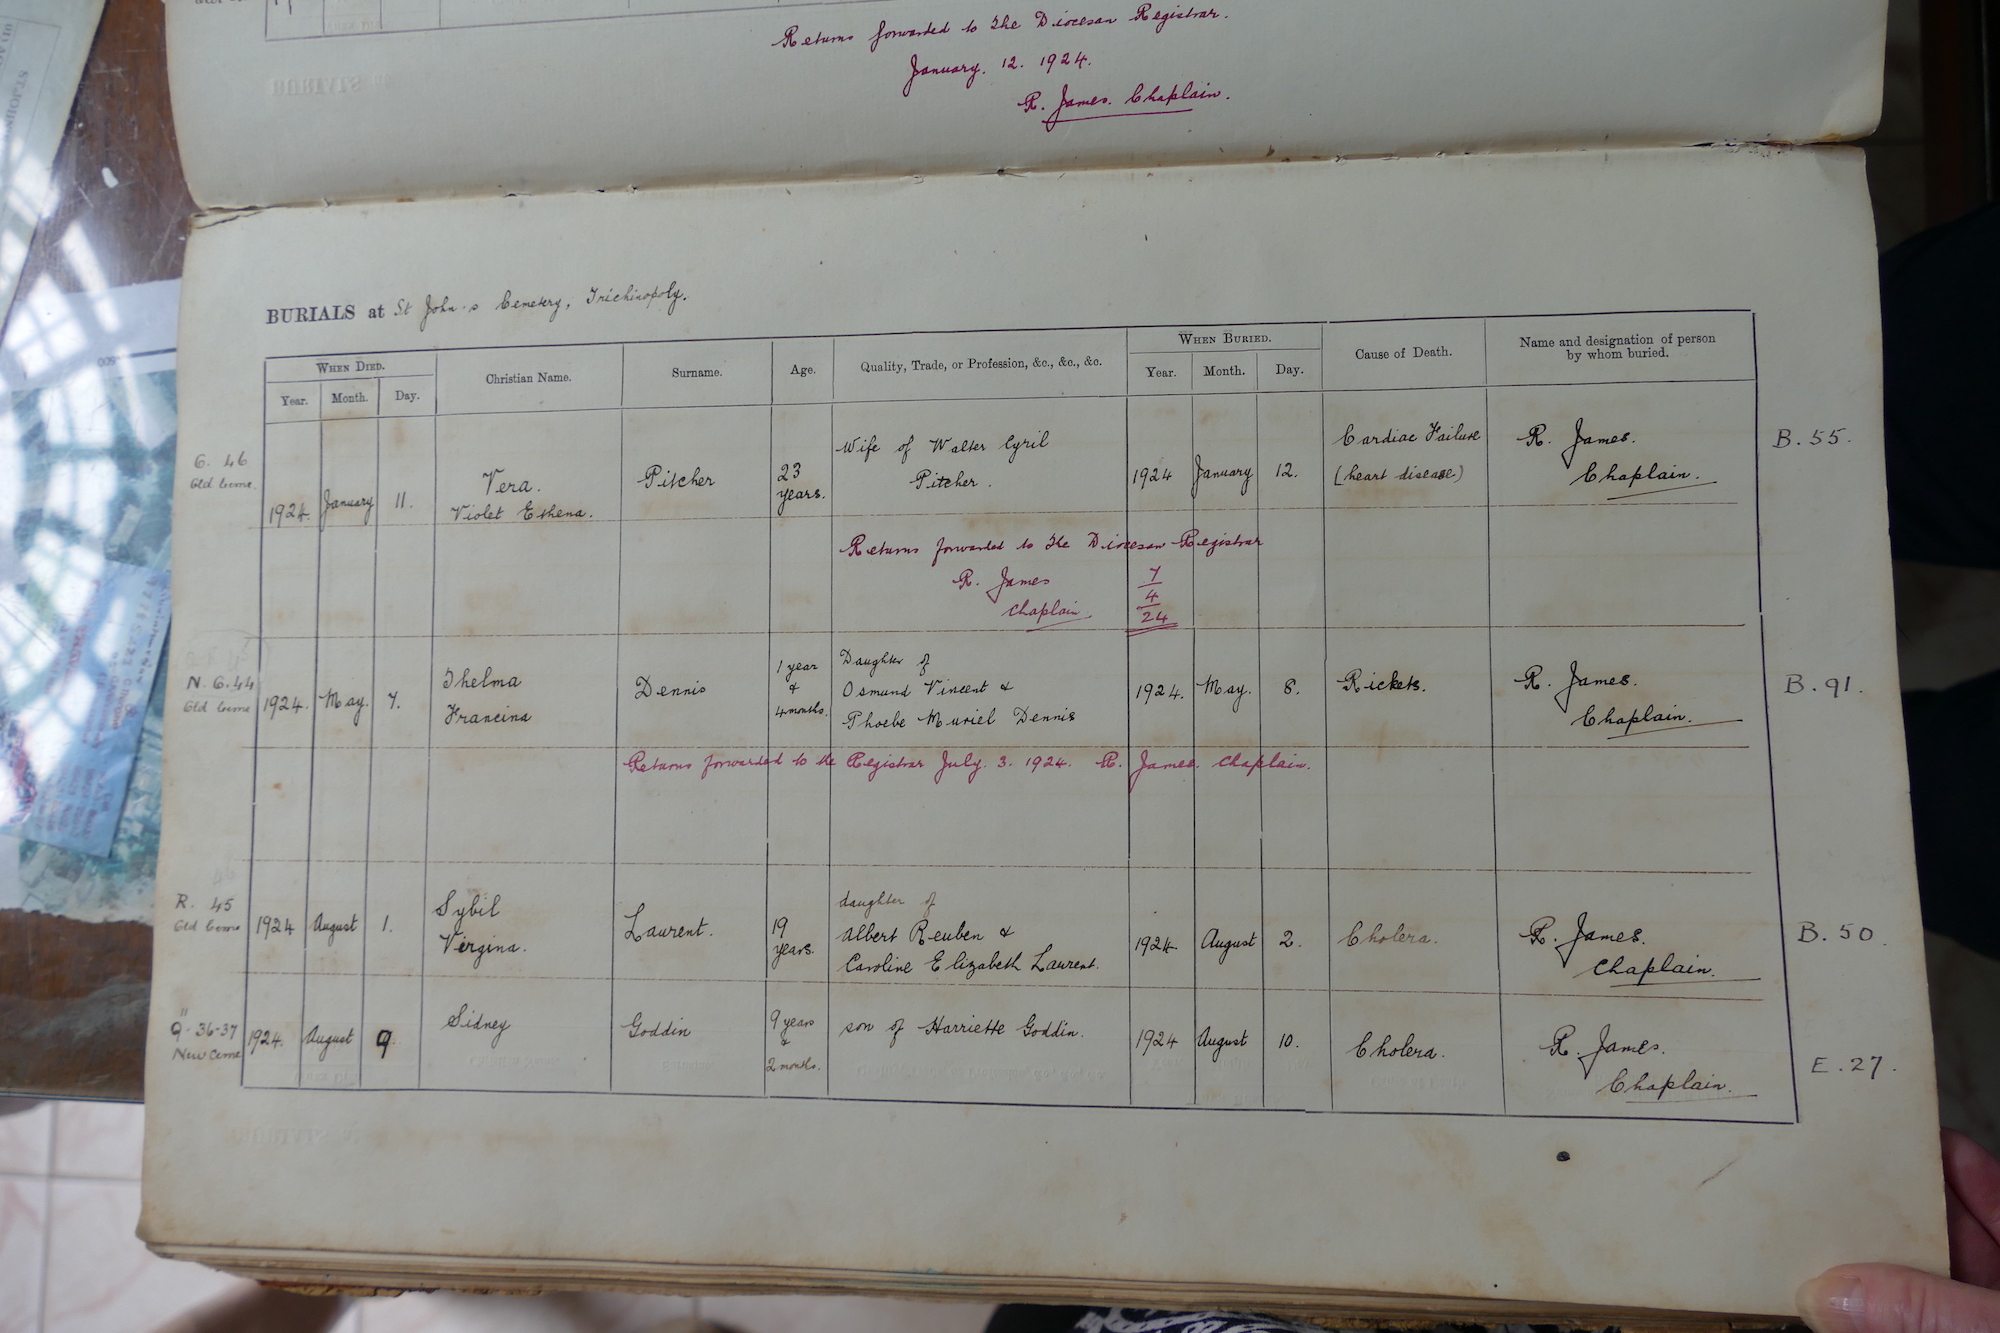 Returns forwarded to the Diocesan Registrar.
January. 12. 1924.
R. James. Chaplain.
BURIALS at St John's Cemetery, Trichinopoly.
WHEN DIED.
Year. Month. Day.
Christian Name.
Surname.
Age.
Quality, Trade, or Profession, &c., &c., &c.
WHEN BURIED.
Year. Month. Day.
Cause of Death.
Name and designation of person
by whom buried.
G. 46
Old Ceme.
1924. January 11.
Vera.
Violet Ethena.
Pitcher
23
years.
Wife of Walter Cyril
Pitcher.
1924 January 12.
Cardiac Failure
(heart disease)
R. James.
Chaplain.
B. 55.
Returns forwarded to the Diocesan Registrar
R. James
Chaplain.
7
4
24
N. G. 44
Old Ceme
1924. May. 7.
Thelma
Francina
Dennis
1 year
&
4 months.
Daughter of
Osmund Vincent &
Phoebe Muriel Dennis
1924. May. 8.
Rickets.
R. James.
Chaplain.
B. 91.
Returns forwarded to the Registrar July. 3. 1924. R. James. Chaplain.
R. 45
Old Ceme
1924 August 1.
Sybil
Vergina.
Laurent.
19
years.
daughter of
Albert Reuben &
Caroline Elizabeth Laurent.
1924 August 2.
Cholera.
R. James.
Chaplain.
B. 50.
Q. 36-37
New Ceme
1924. August 9.
Sidney
Goddin
9 years
&
2 months.
son of Harriette Goddin.
1924 August 10.
Cholera.
R. James.
Chaplain.
E. 27.